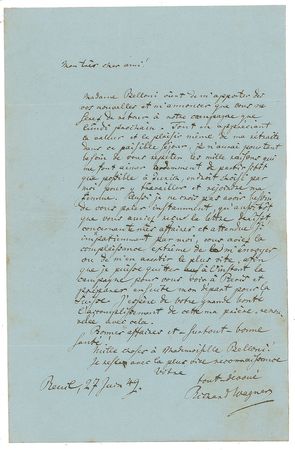 Mon très cher ami!
Madame Belloni vient de m'apporter des
vos nouvelles et m'annoncer que vous ne
serez de retour à votre campagne que
lundi prochain. Tout en appréciant
la valeur et le plaisir même de ma retraite
dans ce paisible séjour, je n'aurai pourtant
besoin de vous répéter les mille raisons qui
me font aimer de partir tôt
que possible à Zurich, endroit choisi par
moi pour y travailler et rejoindre ma
femme. Aussi je ne crois pas avoir besoin
de vous prier instamment, qu'aussitôt
que vous aurez reçu la lettre de Liszt
concernante mes affaires et attendue si
impatiemment par moi, vous ayez la
complaisance extrême de
ou de m'en avertir le plus vite, afin
que je puisse quitter à l'instant la
campagne pour vous voir à Paris et
préparer ensuite mon départ pour la
Suisse. J'espère de votre grande bonté
l'accomplissement de cette ma prière,
avec cela.
Bonnes affaires et surtout bonne
santé!
Mille choses à Mademoiselle Belloni!
Je reste avec la plus vive reconnaissance
Votre
tout dévoué
Reuil, 27 Juin 49.
Richard Wagner